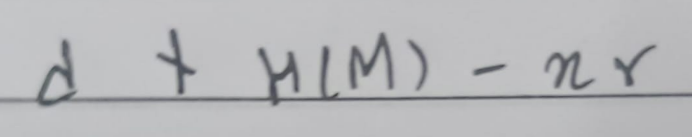 d + H(M) - xr